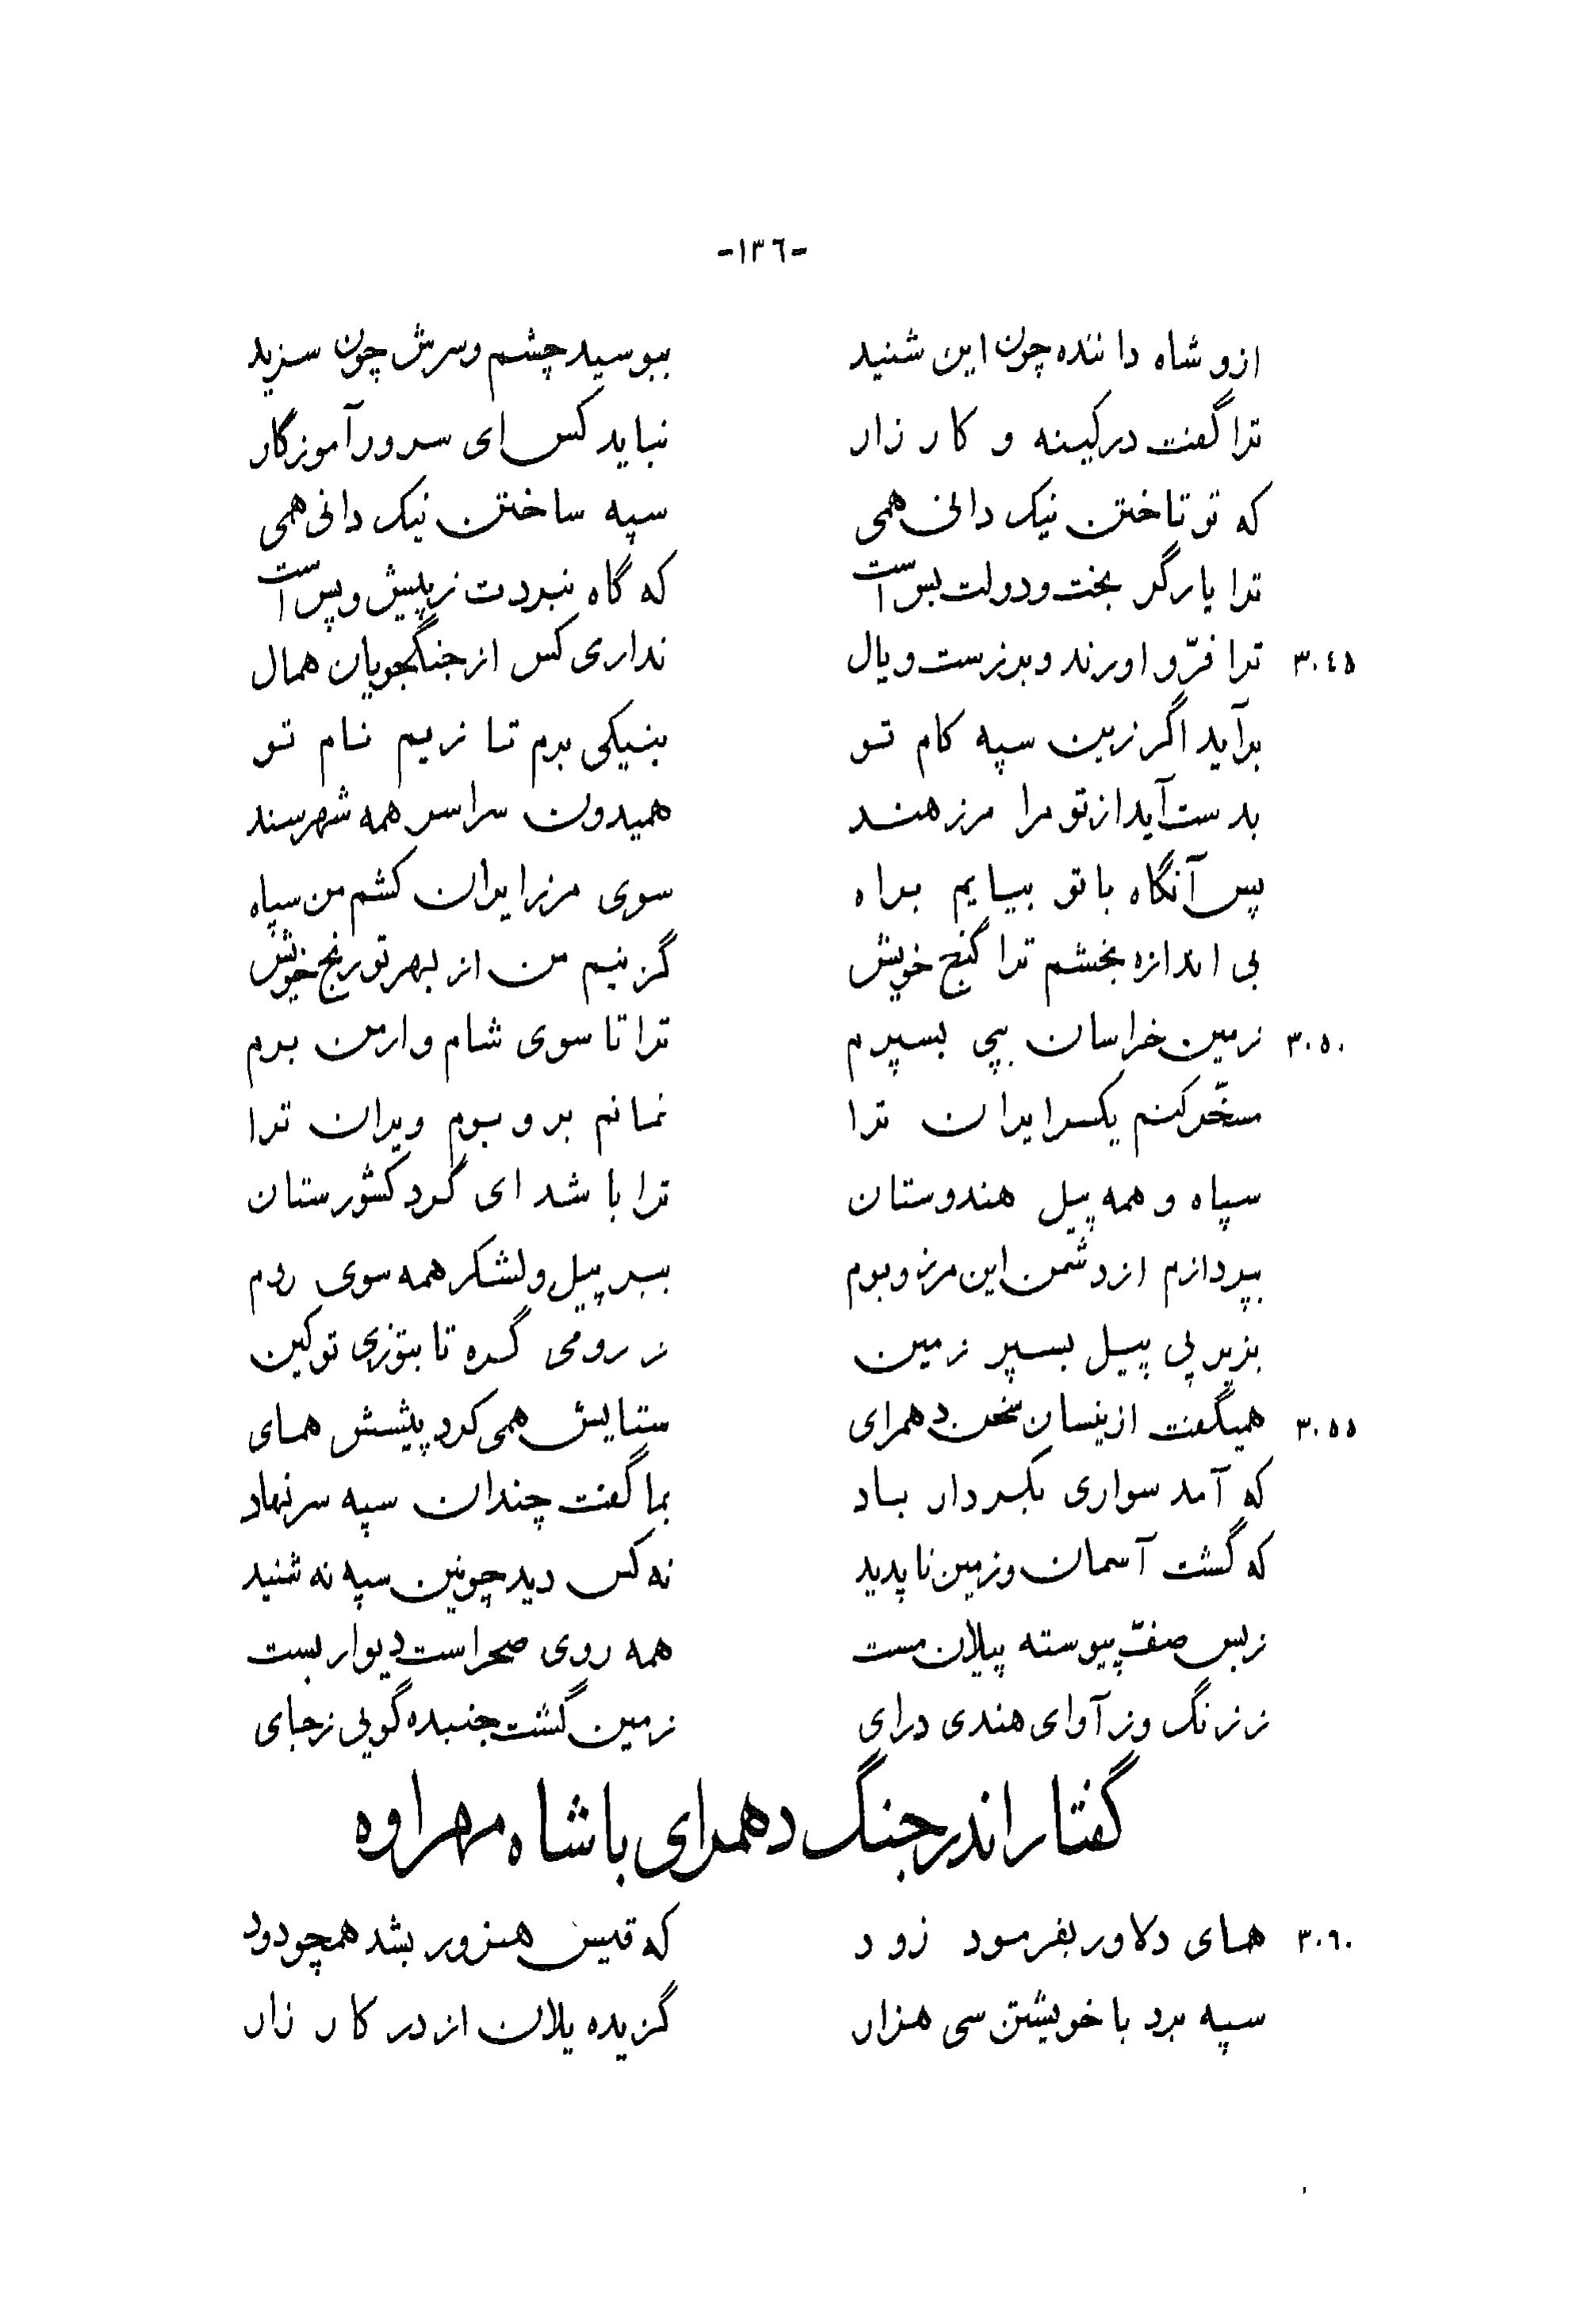 -١٣٦-
ازو شاه داننده چون این شنید ببوسید چشم و سرش چون سزید
ترا گفت در کینه و کار زار نباید کس ای سرور آموزگار
که تو تاختن نیک دانی همی سپه ساختن نیک دانی همی
ترا یارگر بخت و دولت بس است که گاه نبردت ز پیش و پس است
٣٠٤٥ ترا فرّ و اورند و برزست و یال نداری کس از جنگجویان همال
برآید اگر زین سپه کام تو بنیکی برم تا زیم نام تو
بدست آید از تو مرا مرز هند همیدون سراسر همه شهر سند
پس آنگاه با تو بیایم براه سوی مرز ایران کشم من سپاه
بی اندازه بخشم ترا گنج خویش گزینم من از بهر تو رنج خویش
٣٠٥٠ زمین خراسان بپی بسپرم ترا تا سوی شام و ارمن برم
مسخّر کنم یکسر ایران ترا نمانم بر و بوم ویران ترا
سپاه و همه پیل هندوستان ترا باشد ای گرد کشورستان
بپردازم از دشمن این مرز و بوم ببر پیل و لشکر همه سوی روم
بزیر پی پیل بسپر زمین ز رومی گره تا بتوزی تو کین
٣٠٥٥ همیگفت ازینسان سخن دهمرای ستایش همی کرد پیشش همای
که آمد سواری بکردار باد بما گفت چندان سپه سر نهاد
که گشت آسمان و زمین ناپدید نه کس دید چونین سپه نه شنید
ز بس صفّ پیوسته پیلان مست همه روی صحراست دیوار بست
ز زنگ وز آوای هندی درای زمین گشت جنبده گویی ز جای
گفتار اندر جنگ دهمرای با شاه مهراوه
٣٠٦٠ همای دلاور بفرمود زود که قیس هنرور بشد همچو دود
سپه برد با خویشتن سی هزار گزیده یلان از در کار زار